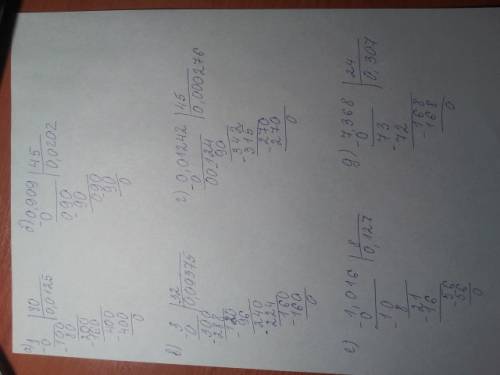 а) 1 | 80
-0 | 0,0125
100
-80
200
-160
400
-400
0
б) 0,909 | 45
-0 | 0,0202
090
-90
090
-90
0
в) 3 | 32
-0
300
-288
120
-96
240
-224
160
-160
0
г) 0,01242 | 45
-0 | 0,000276
00124
-90
342
-315
270
-270
0
е) 1,016 | 8
-0 | 0,127
10
-8
21
-16
56
-56
0
д) 7,368 | 24
-0 | 0,307
73
72
168
-168
0